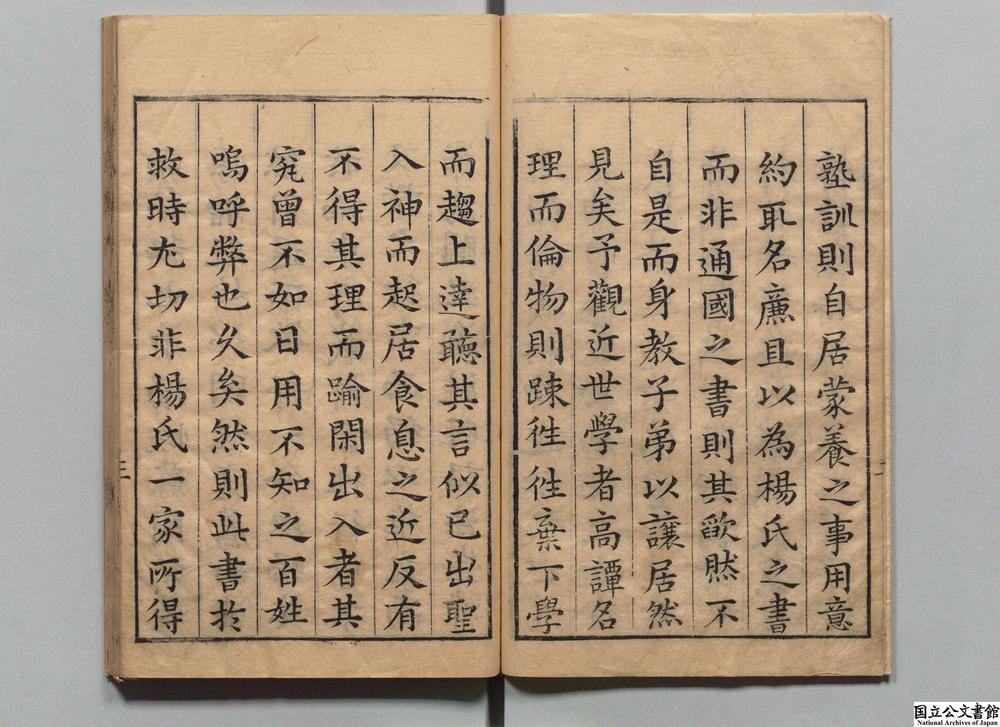 塾訓則自居蒙養之事用意
約取名廉且以為楊氏之書
而非通國之書則其歉然不
自是而身教子弟以讓居然
見矣予觀近世學者高譚名
理而倫物則踈徃徃棄下學
二
而趨上達聽其言似已出聖
入神而起居食息之近反有
不得其理而踰閑出入者其
究曾不如日用不知之百姓
嗚呼弊也久矣然則此書於
救時尤切非楊氏一家所得
三
国立公文書館
National Archives of Japan